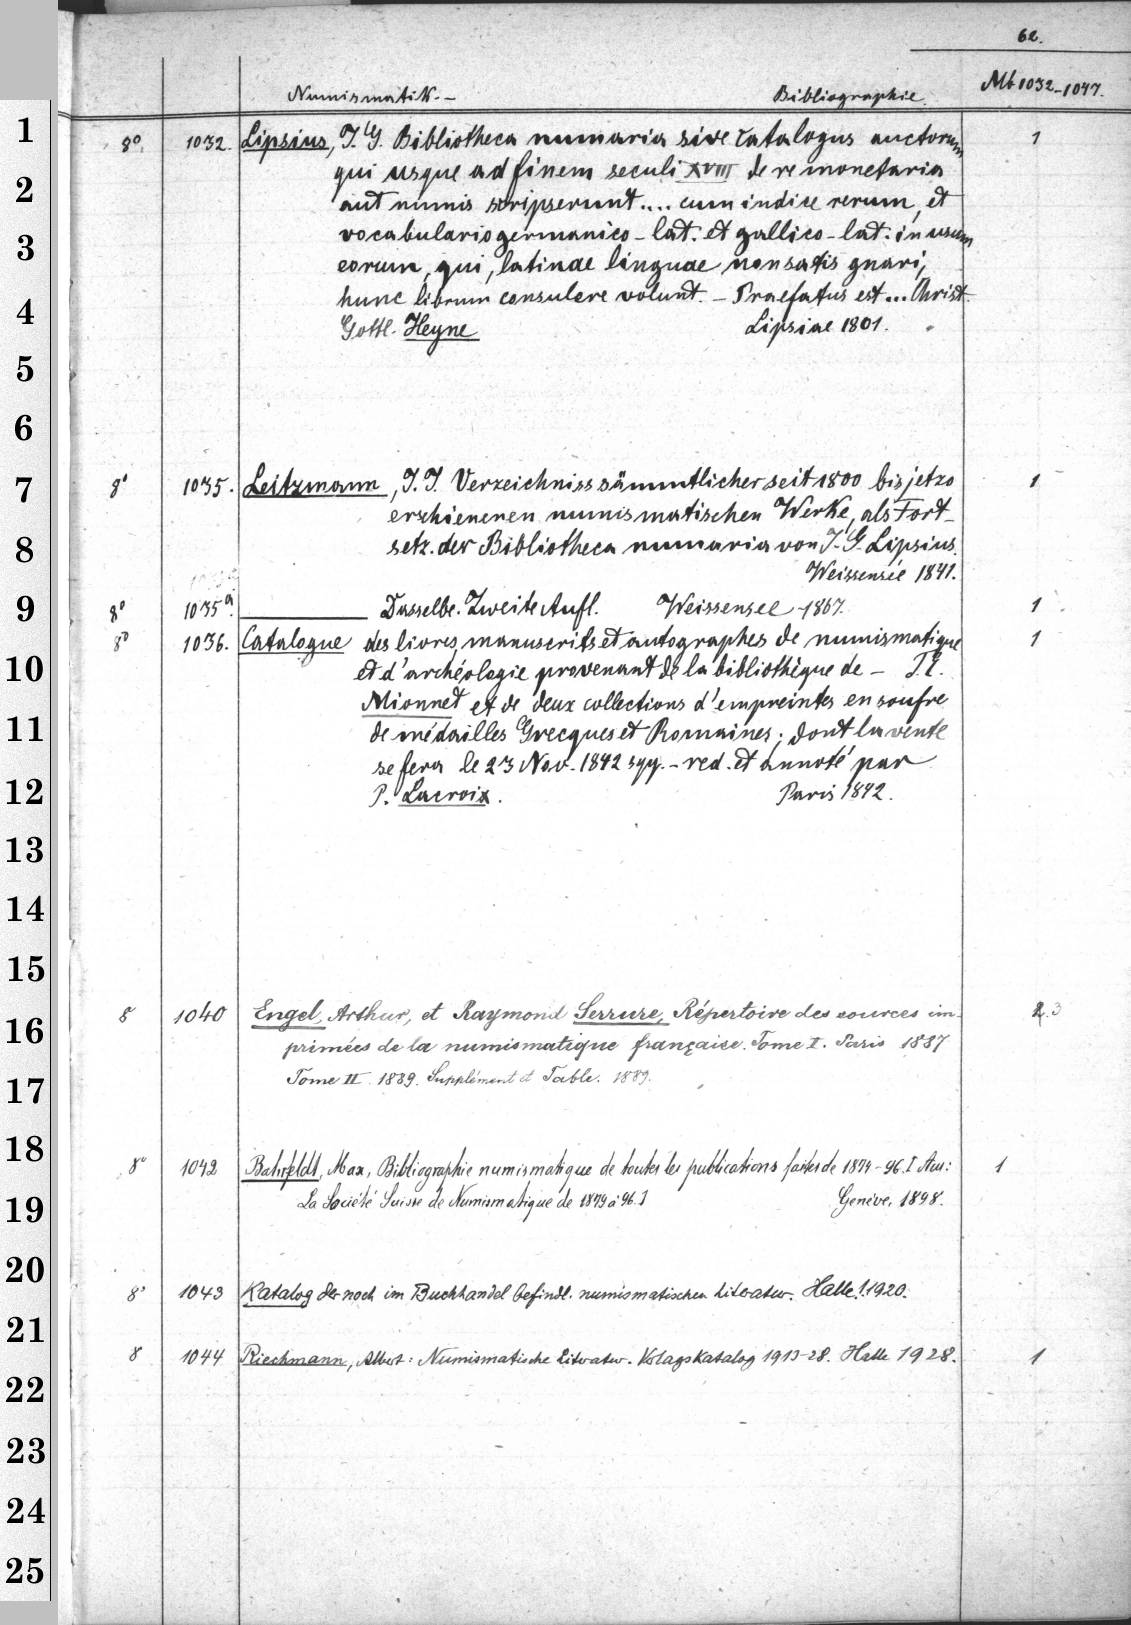 62.
Numismatik.- Bibliographie. Mb 1032-1047.
8° 1032. Lipsius, J. G. Bibliotheca numaria sive Catalogus auctorum 1
qui usque ad finem seculi XVIII de re monetaria
aut numis scripserunt.... cum indice rerum, et
vocabulario germanico-lat. et gallico-lat. in usum
eorum, qui, latinae linguae non satis gnari,
hunc librum consulere volunt. - Praefatus est... Christ.
Gottl. Heyne Lipsiae 1801.
8° 1035. Leitzmann, J. J. Verzeichniss sämmtlicher seit 1800 bis jetzo 1
erschienenen numismatischen Werke, als Fort-
setz. der Bibliotheca numaria von J. G. Lipsius.
Weissensee 1841.
8° 1035a. Dasselbe. Zweite Aufl. Weissensee 1867. 1
8° 1036. Catalogue des livres, manuscrits et autographes de numismatique 1
et d'archéologie provenant de la bibliothèque de - T. E.
Mionnet et de deux collections d'empreintes en soufre
de médailles Grecques et Romaines; dont la vente
se fera le 23 Nov. 1842 sqq. - red. et annoté par
P. Lacroix. Paris 1842.
8 1040 Engel, Arthur, et Raymond Serrure, Répertoire des sources im- 2 3
primées de la numismatique française. Tome I. Paris 1887
Tome II 1889. Supplément et Table. 1889.
8° 1042 Bahrfeldt, Max, Bibliographie numismatique de toutes les publications faites de 1874-96. [Aus: 1
La Société Suisse de Numismatique de 1879 à 96.] Genève, 1898.
8° 1043 Katalog der noch im Buchhandel befindl. numismatischen Literatur. Halle. 1920.
8 1044 Riechmann, Albert: Numismatische Literatur. Verlagskatalog 1913-28. Halle 1928. 1
1
2
3
4
5
6
7
8
9
10
11
12
13
14
15
16
17
18
19
20
21
22
23
24
25